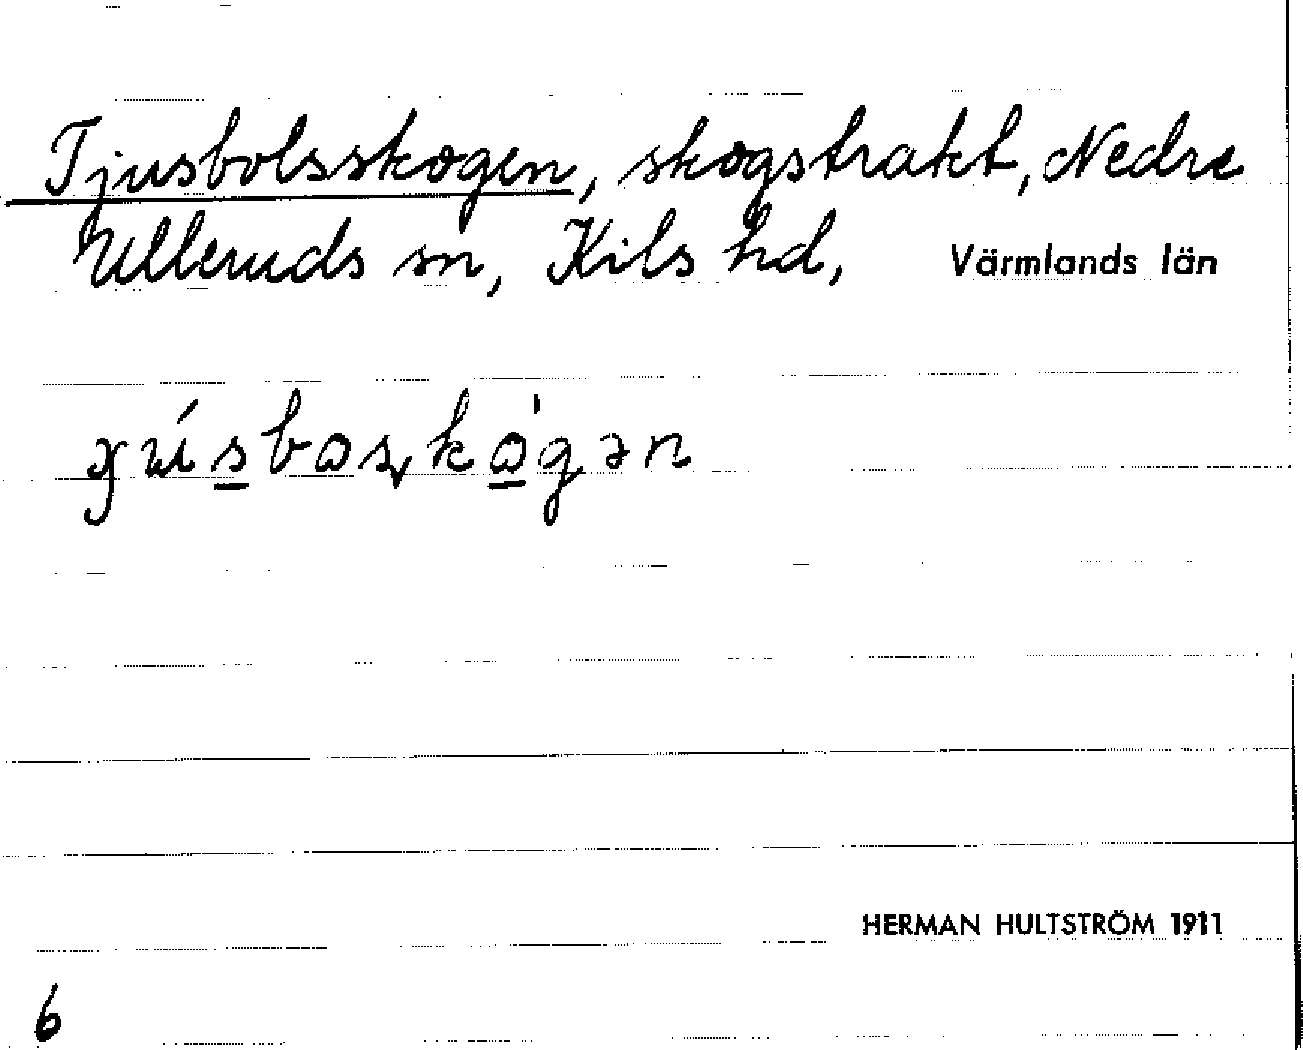 Tjusbolsskogen, skogstrakt, Nedre
Ulleruds sn, Kils hd, Värmlands län
HERMAN HULTSTRÖM 1911
6